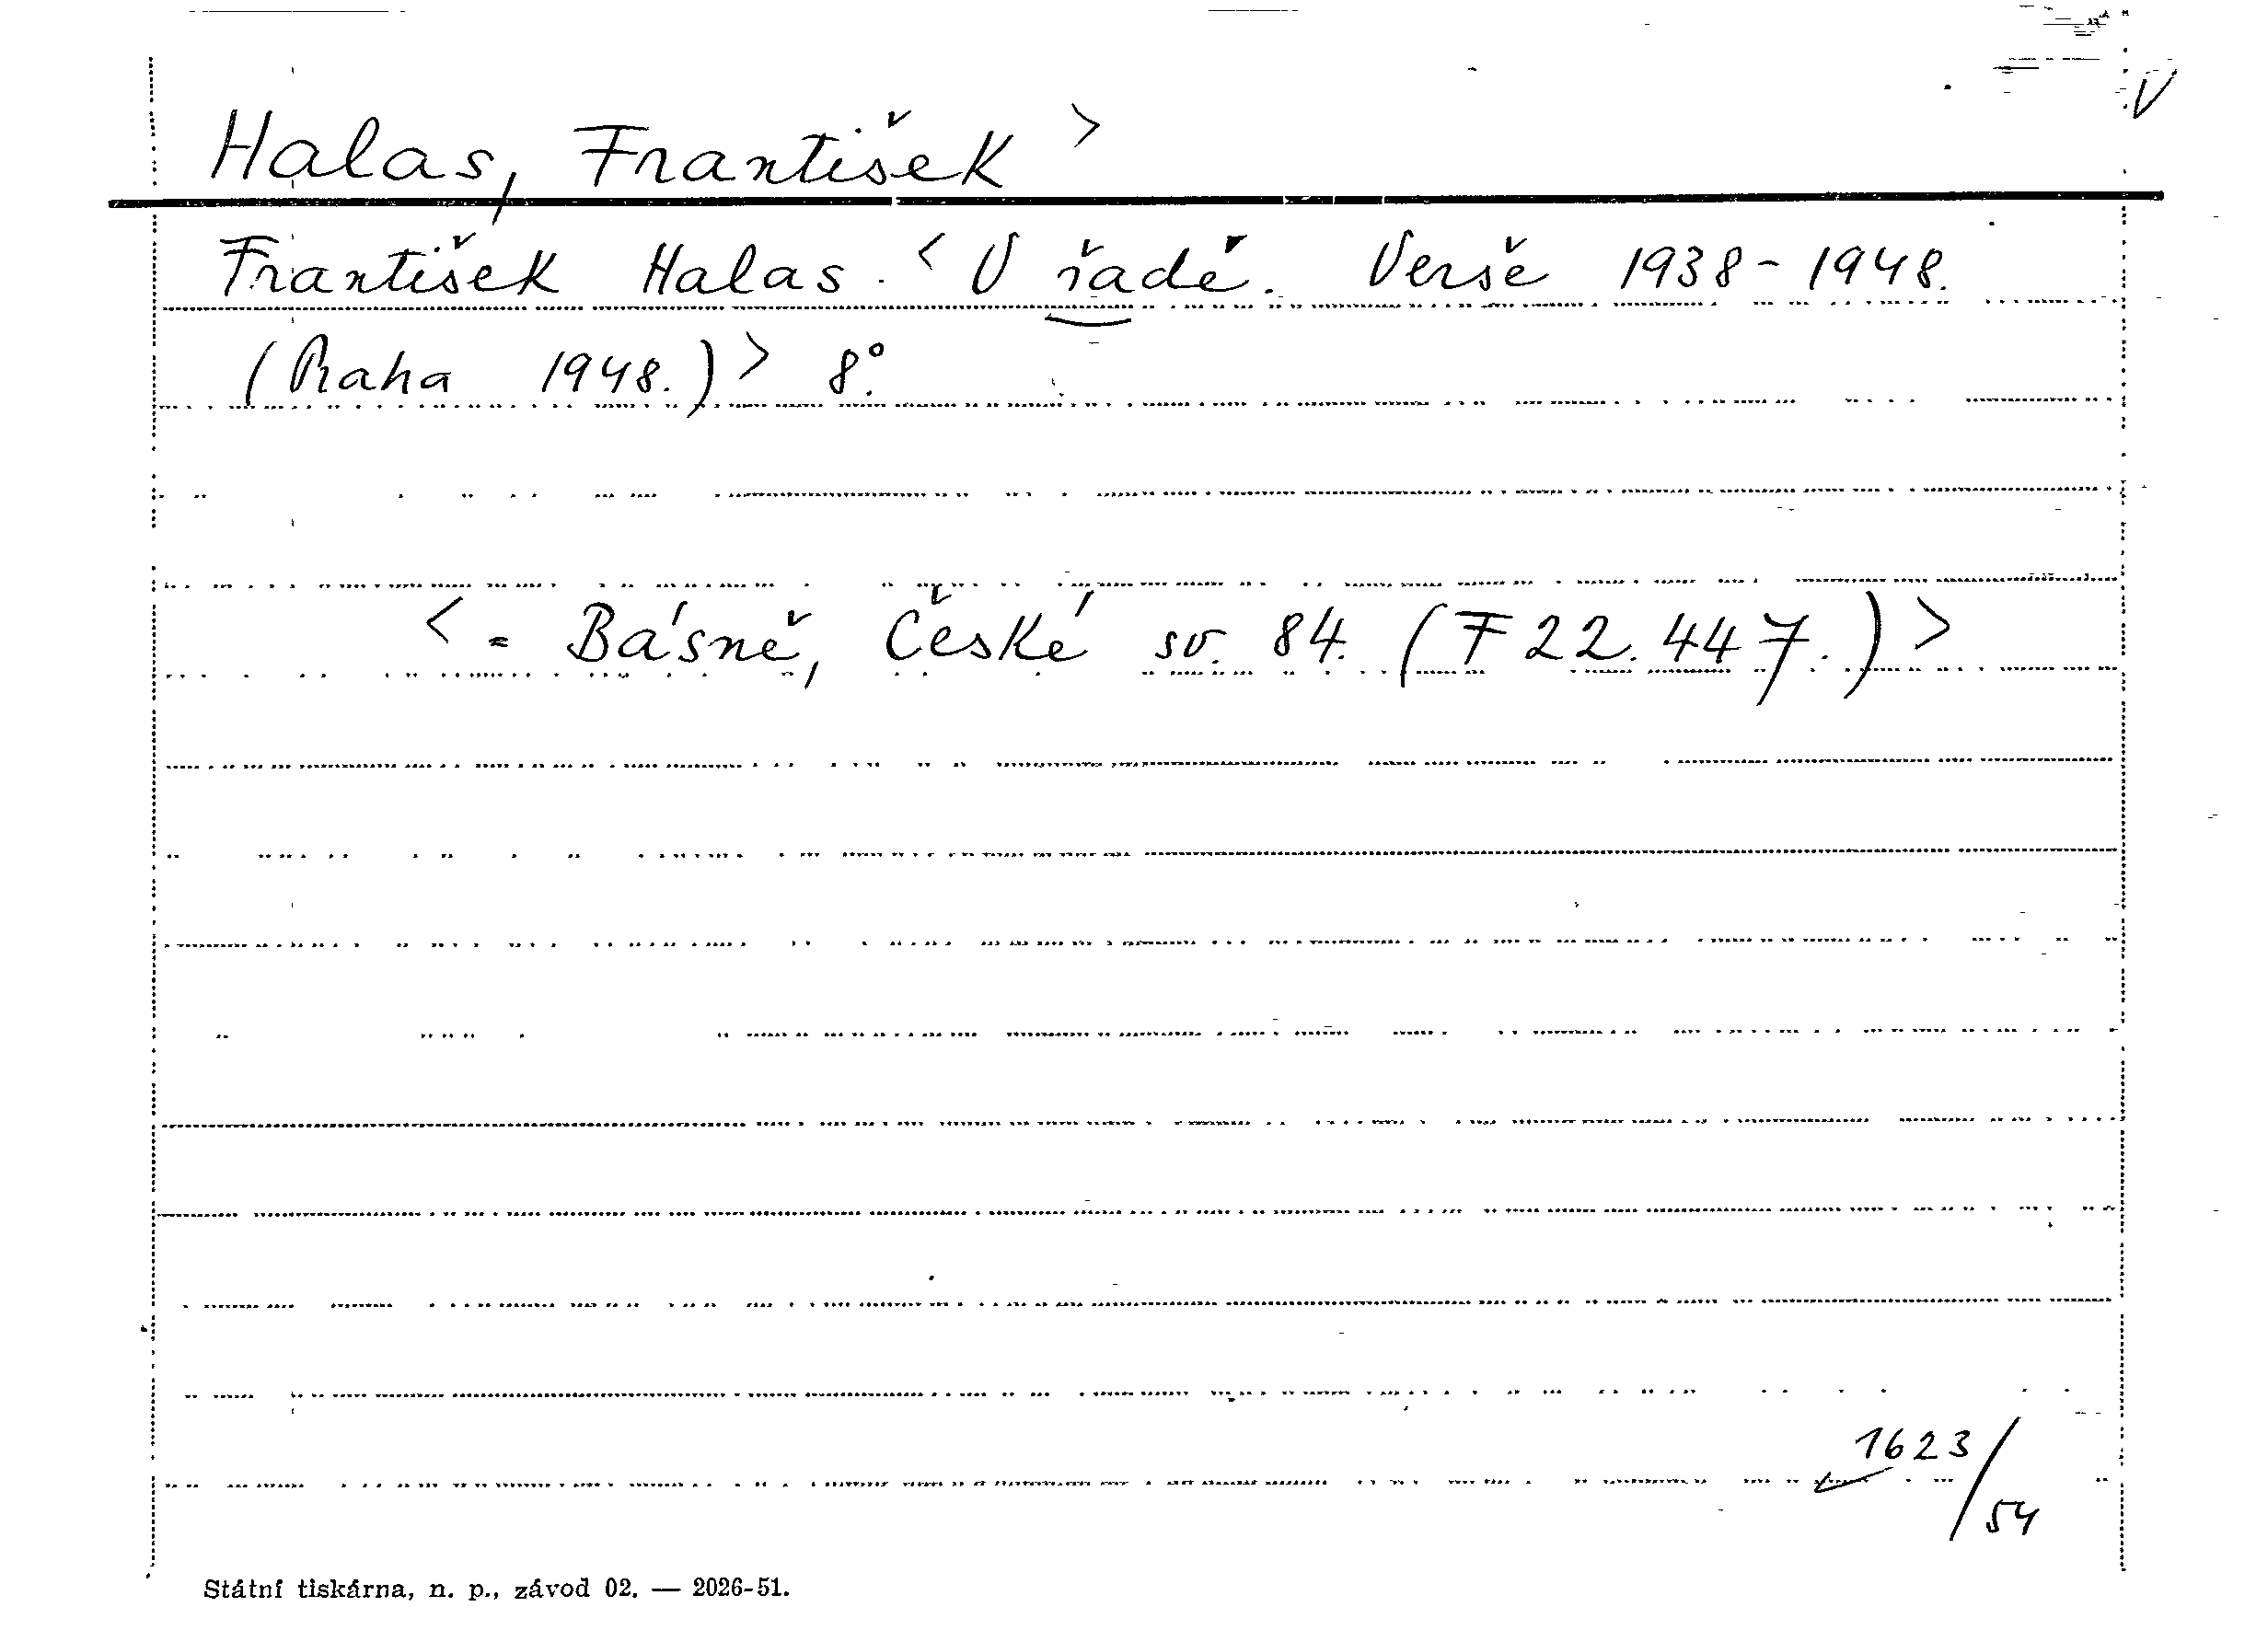 V
Halas, František >
František Halas. < V řadě. Verše 1938-1948.
(Praha 1948.) > 8°.
< = Básně, České sv. 84. (F 22.447.) >
1623/54
Státní tiskárna, n. p., závod 02. — 2026-51.